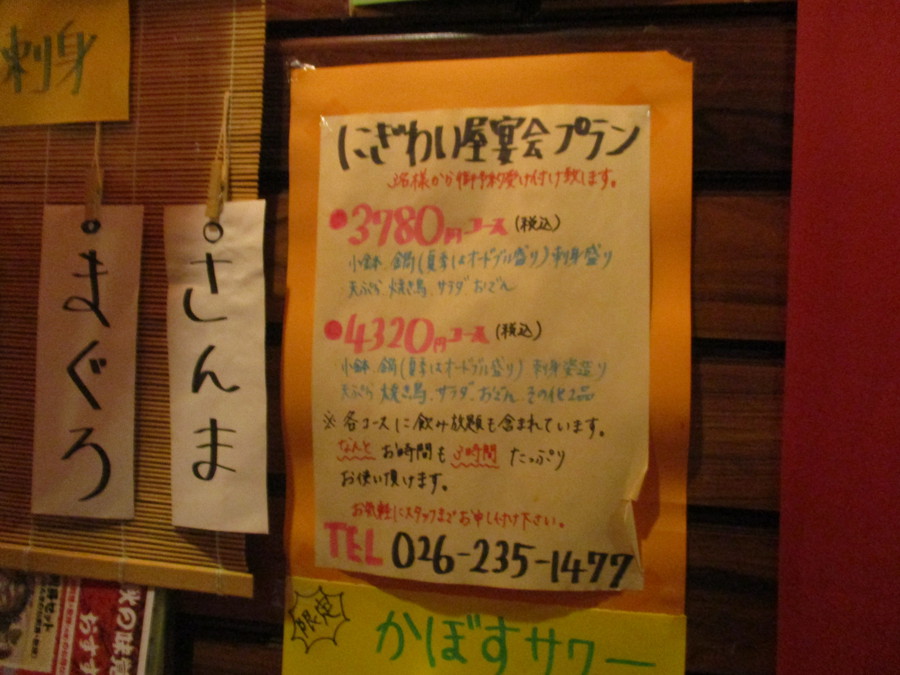 刺身
まぐろ
さんま
にぎわい屋宴会プラン
3名様から御予約受け付け致します。
●3780円コース(税込)
小鉢、鍋(夏季はオードブル盛り)刺身盛り
天ぷら、焼き鳥、サラダ、おでん
●4320円コース(税込)
小鉢、鍋(夏季はオードブル盛り)刺身姿造り
天ぷら、焼き鳥、サラダ、おでん、その他2品
※各コースに飲み放題も含まれています。
なんとお時間も3時間たっぷり
お使い頂けます。
お気軽にスタッフまでお申し付け下さい。
TEL 026-235-1477
限定
かぼすサワー